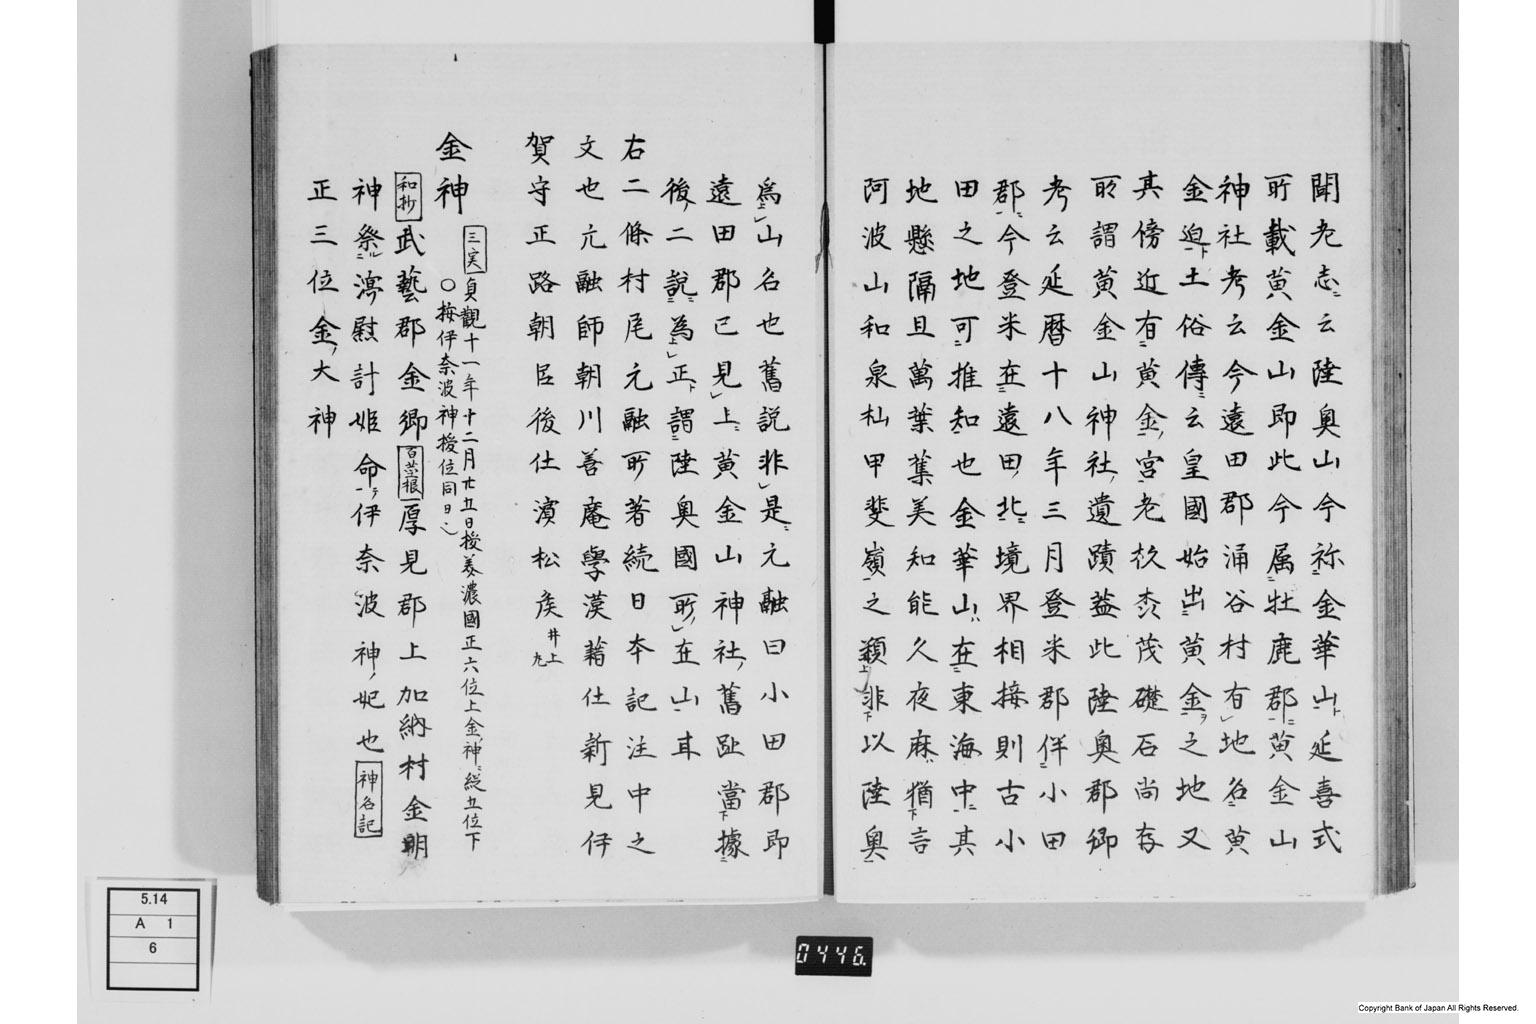 聞老志云陸奥山今祢金華山延喜式
所載黄金山即此今属牡鹿郡黄金山
神社考云今遠田郡涌谷村有地名黄
金迫土俗傳云皇國始出黄金之地又
其傍近有黄金宮老杉森茂礎石尚存
所謂黄金山神社遺蹟蓋此陸奥郡郷
考云延暦十八年三月登米郡併小田
郡今登米在遠田北境界相接則古小
田之地可推知也金華山在東海中其
地懸隔且萬葉葉美知能久夜麻猶言
阿波山和泉杣甲斐嶺之類非以陸奥
為山名也舊説非是元融曰小田郡即
遠田郡已見上黄金山神社舊趾當據
後二説為正謂陸奥國所在山耳
右二條村尾元融所著続日本記注中之
文也元融師朝川善庵學漢籍仕新見伊
賀守正路朝臣後仕濱松矦井上九
金神
三実 貞觀十一年十二月廿五日授美濃國正六位上金神従五位下
○按伊奈波神授位同日
和抄 武藝郡金郷 百莖根 厚見郡上加納村金明
神祭渟熨計姫命伊奈波神妃也 神名記
正三位金大神
5.14
A 1
6
0446
Copyright Bank of Japan All Rights Reserved.